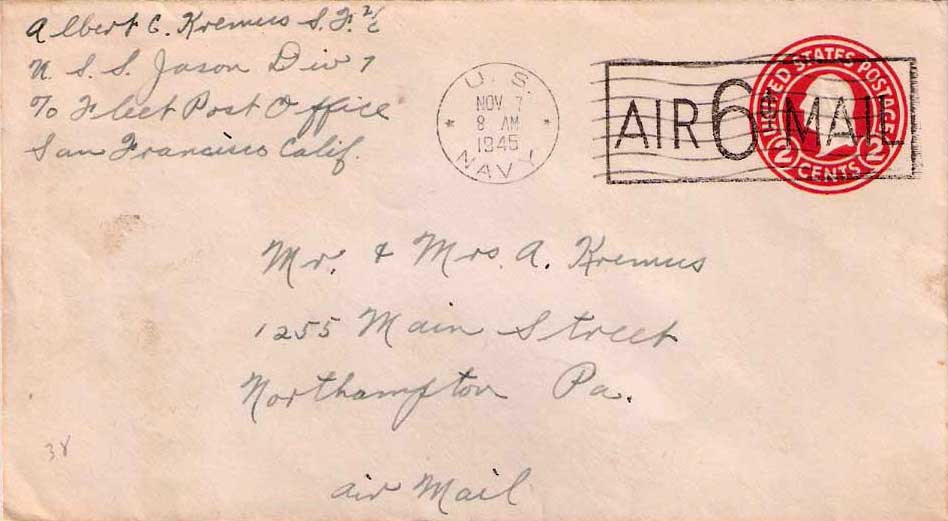 Albert C. Kremus S. F. 2/c
U. S. S. Jason Div 7
℅ Fleet Post Office
San Francisco Calif.
U. S.
NOV 7
8 AM
1945
NAVY
AIR 6¢ MAIL
UNITED STATES POSTAGE
2 CENTS 2
Mr. & Mrs. A. Kremus
1255 Main Street
Northampton Pa.
38
air Mail